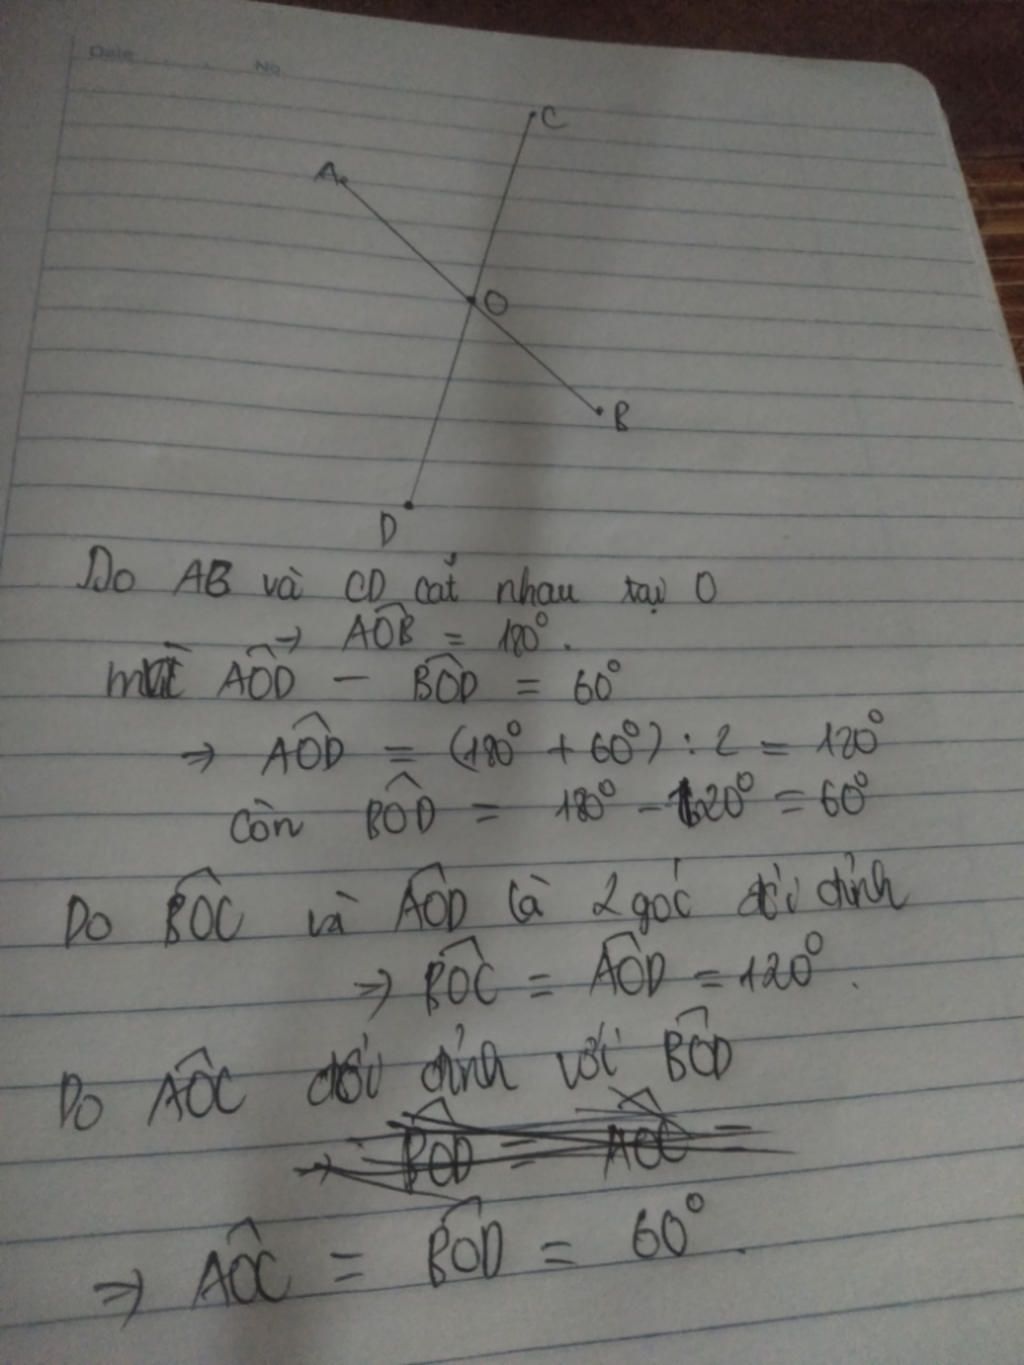 Date No
C
A
O
B
D
Do AB và CD cắt nhau tại O
⇒ AÔB = 180°.
AÔD − BÔD = 60°
⇒ AÔD = (180° + 60°) : 2 = 120°
Còn BÔD = 180° − 120° = 60°
Do BÔC và AÔD là 2 góc đối đỉnh
⇒ BÔC = AÔD = 120°.
Do AÔC đối đỉnh với BÔD
⇒ BÔD = AÔC =
⇒ AÔC = BÔD = 60°.